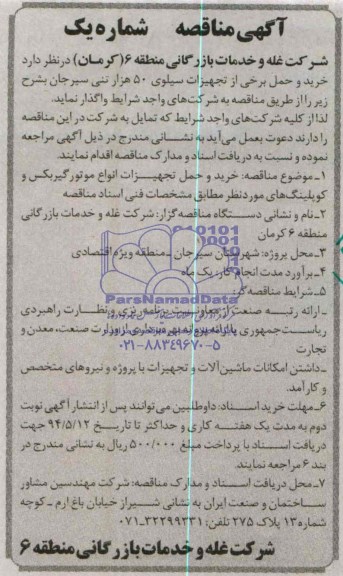 آگهی مناقصه شماره یک
شرکت غله و خدمات بازرگانی منطقه ۶(کرمان) درنظر دارد
خرید و حمل برخی از تجهیزات سیلوی ۵۰ هزار تنی سیرجان بشرح
زیر را از طریق مناقصه به شرکت‌های واجد شرایط واگذار نماید.
لذا از کلیه شرکت‌های واجد شرایط که تمایل به شرکت در این مناقصه
را دارند دعوت بعمل می‌آید به نشانی مندرج در ذیل آگهی مراجعه
نموده و نسبت به دریافت اسناد و مدارک مناقصه اقدام نمایند.
۱ـ موضوع مناقصه: خرید و حمل تجهیزات انواع موتور گیربکس و
کوپلینگ‌های موردنظر مطابق مشخصات فنی اسناد مناقصه
۲ـ نام و نشانی دستگاه مناقصه‌گزار: شرکت غله و خدمات بازرگانی
منطقه ۶ کرمان
۳ـ محل پروژه: شهرستان سیرجان ـ منطقه ویژه اقتصادی
۴ـ برآورد مدت انجام کار: یک ماه
ParsNamadData
۵ـ شرایط مناقصه‌گر:
ـ ارائه رتبه صنعت از معاونت برنامه‌ریزی و نظارت راهبردی
ریاست‌جمهوری یا ارائه پروانه بهره‌برداری از وزارت صنعت، معدن و
تجارت
۰۲۱-۸۸۳۴۹۶۷۰-۵
ـ داشتن امکانات ماشین‌آلات و تجهیزات با پروژه و نیروهای متخصص
و کارآمد.
۶ـ مهلت خرید اسناد: داوطلبین می‌توانند پس از انتشار آگهی نوبت
دوم به مدت یک هفته کاری و حداکثر تا تاریخ ۹۴/۵/۱۲ جهت
دریافت اسناد با پرداخت مبلغ ۵۰۰/۰۰۰ ریال به نشانی مندرج در
بند ۶ مراجعه نمایند.
۷ـ محل دریافت اسناد و مدارک مناقصه: شرکت مهندسین مشاور
ساختمان و صنعت ایران به نشانی شیراز خیابان باغ ارم ـ کوچه
شماره ۱۳ پلاک ۲۷۵ تلفن: ۳۲۲۹۹۳۳۱ـ۰۷۱
شرکت غله و خدمات بازرگانی منطقه ۶